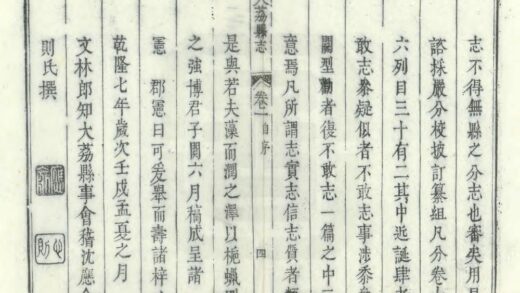 志不得無縣之分志也審矣用
諮採嚴分校披訂纂組凡分卷
六列目三十有二其中近誕肆
敢志叅疑似者不敢志事涉
關型勸者復不敢志一篇之中
意焉凡所謂志實志信志質者
大荔縣志
卷一
自序
四
是與若夫藻而潤之舉以梔蠟
之強博君子閱六月稿成呈諸
憲 郡憲曰可爰舉而壽諸梓
乾隆七年歲次壬戌孟夏之月
文林郎知大荔縣事會稽沈應
則氏撰